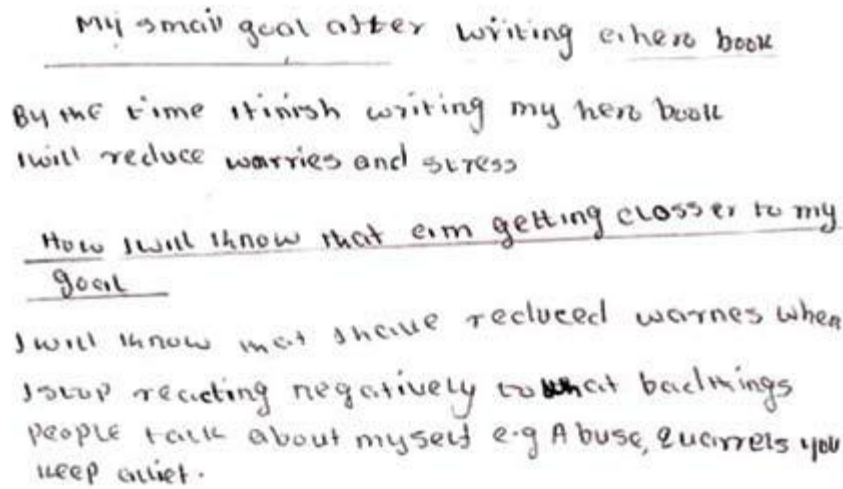 My small goal after writing a hero book
By the time I finish writing my hero book
I will reduce warries and stress
How I will know that am getting closser to my
goal
I will know that I have reduced warries when
I stop reacting negatively to what bad things
people talk about myself e.g Abuse, quarrels you
keep quiet.